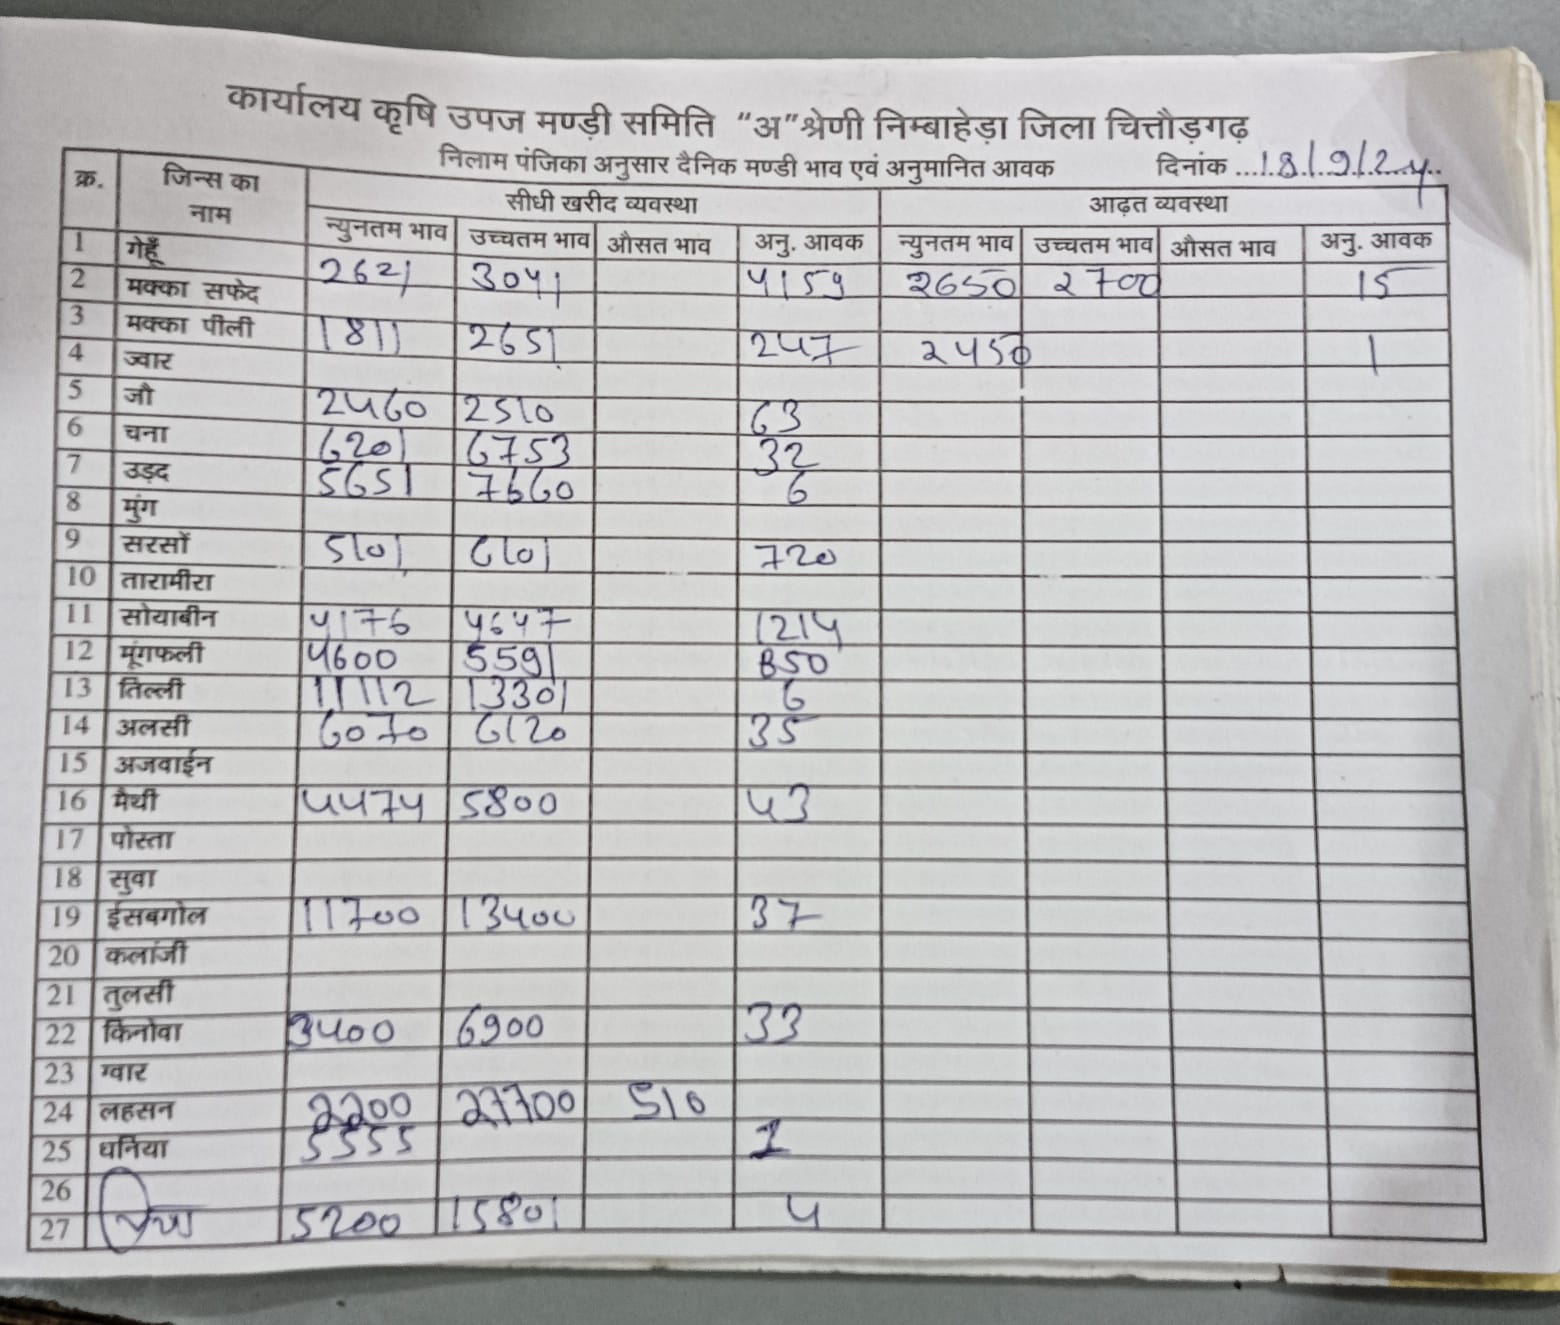 कार्यालय कृषि उपज मण्ड़ी समिति "अ" श्रेणी निम्बाहेड़ा जिला चित्तौड़गढ़
निलाम पंजिका अनुसार दैनिक मण्डी भाव एवं अनुमानित आवक दिनांक ...18/9/24..
क्र. जिन्स का नाम सीधी खरीद व्यवस्था आढ़त व्यवस्था
न्युनतम भाव उच्चतम भाव औसत भाव अनु. आवक न्युनतम भाव उच्चतम भाव औसत भाव अनु. आवक
1 गेहूँ 2621 3041 4159 2650 2700 15
2 मक्का सफेद
3 मक्का पीली 1811 2651 247 2450 1
4 ज्वार
5 जौ 2460 2510 63
6 चना 6201 6753 32
7 उड़द 5651 7660 6
8 मुंग
9 सरसों 5101 6101 720
10 तारामीरा
11 सोयाबीन 4176 4647 1214
12 मूंगफली 4600 5591 850
13 तिल्ली 11112 13301 6
14 अलसी 6070 6120 35
15 अजवाईन
16 मैथी 4474 5800 43
17 पोस्ता
18 सुवा
19 ईसबगोल 11700 13400 37
20 कलांजी
21 तुलसी
22 किनोवा 3400 6900 33
23 ग्वार
24 लहसन 2200 27700 510
25 धनिया 5555 1
26
27 5200 15801 4